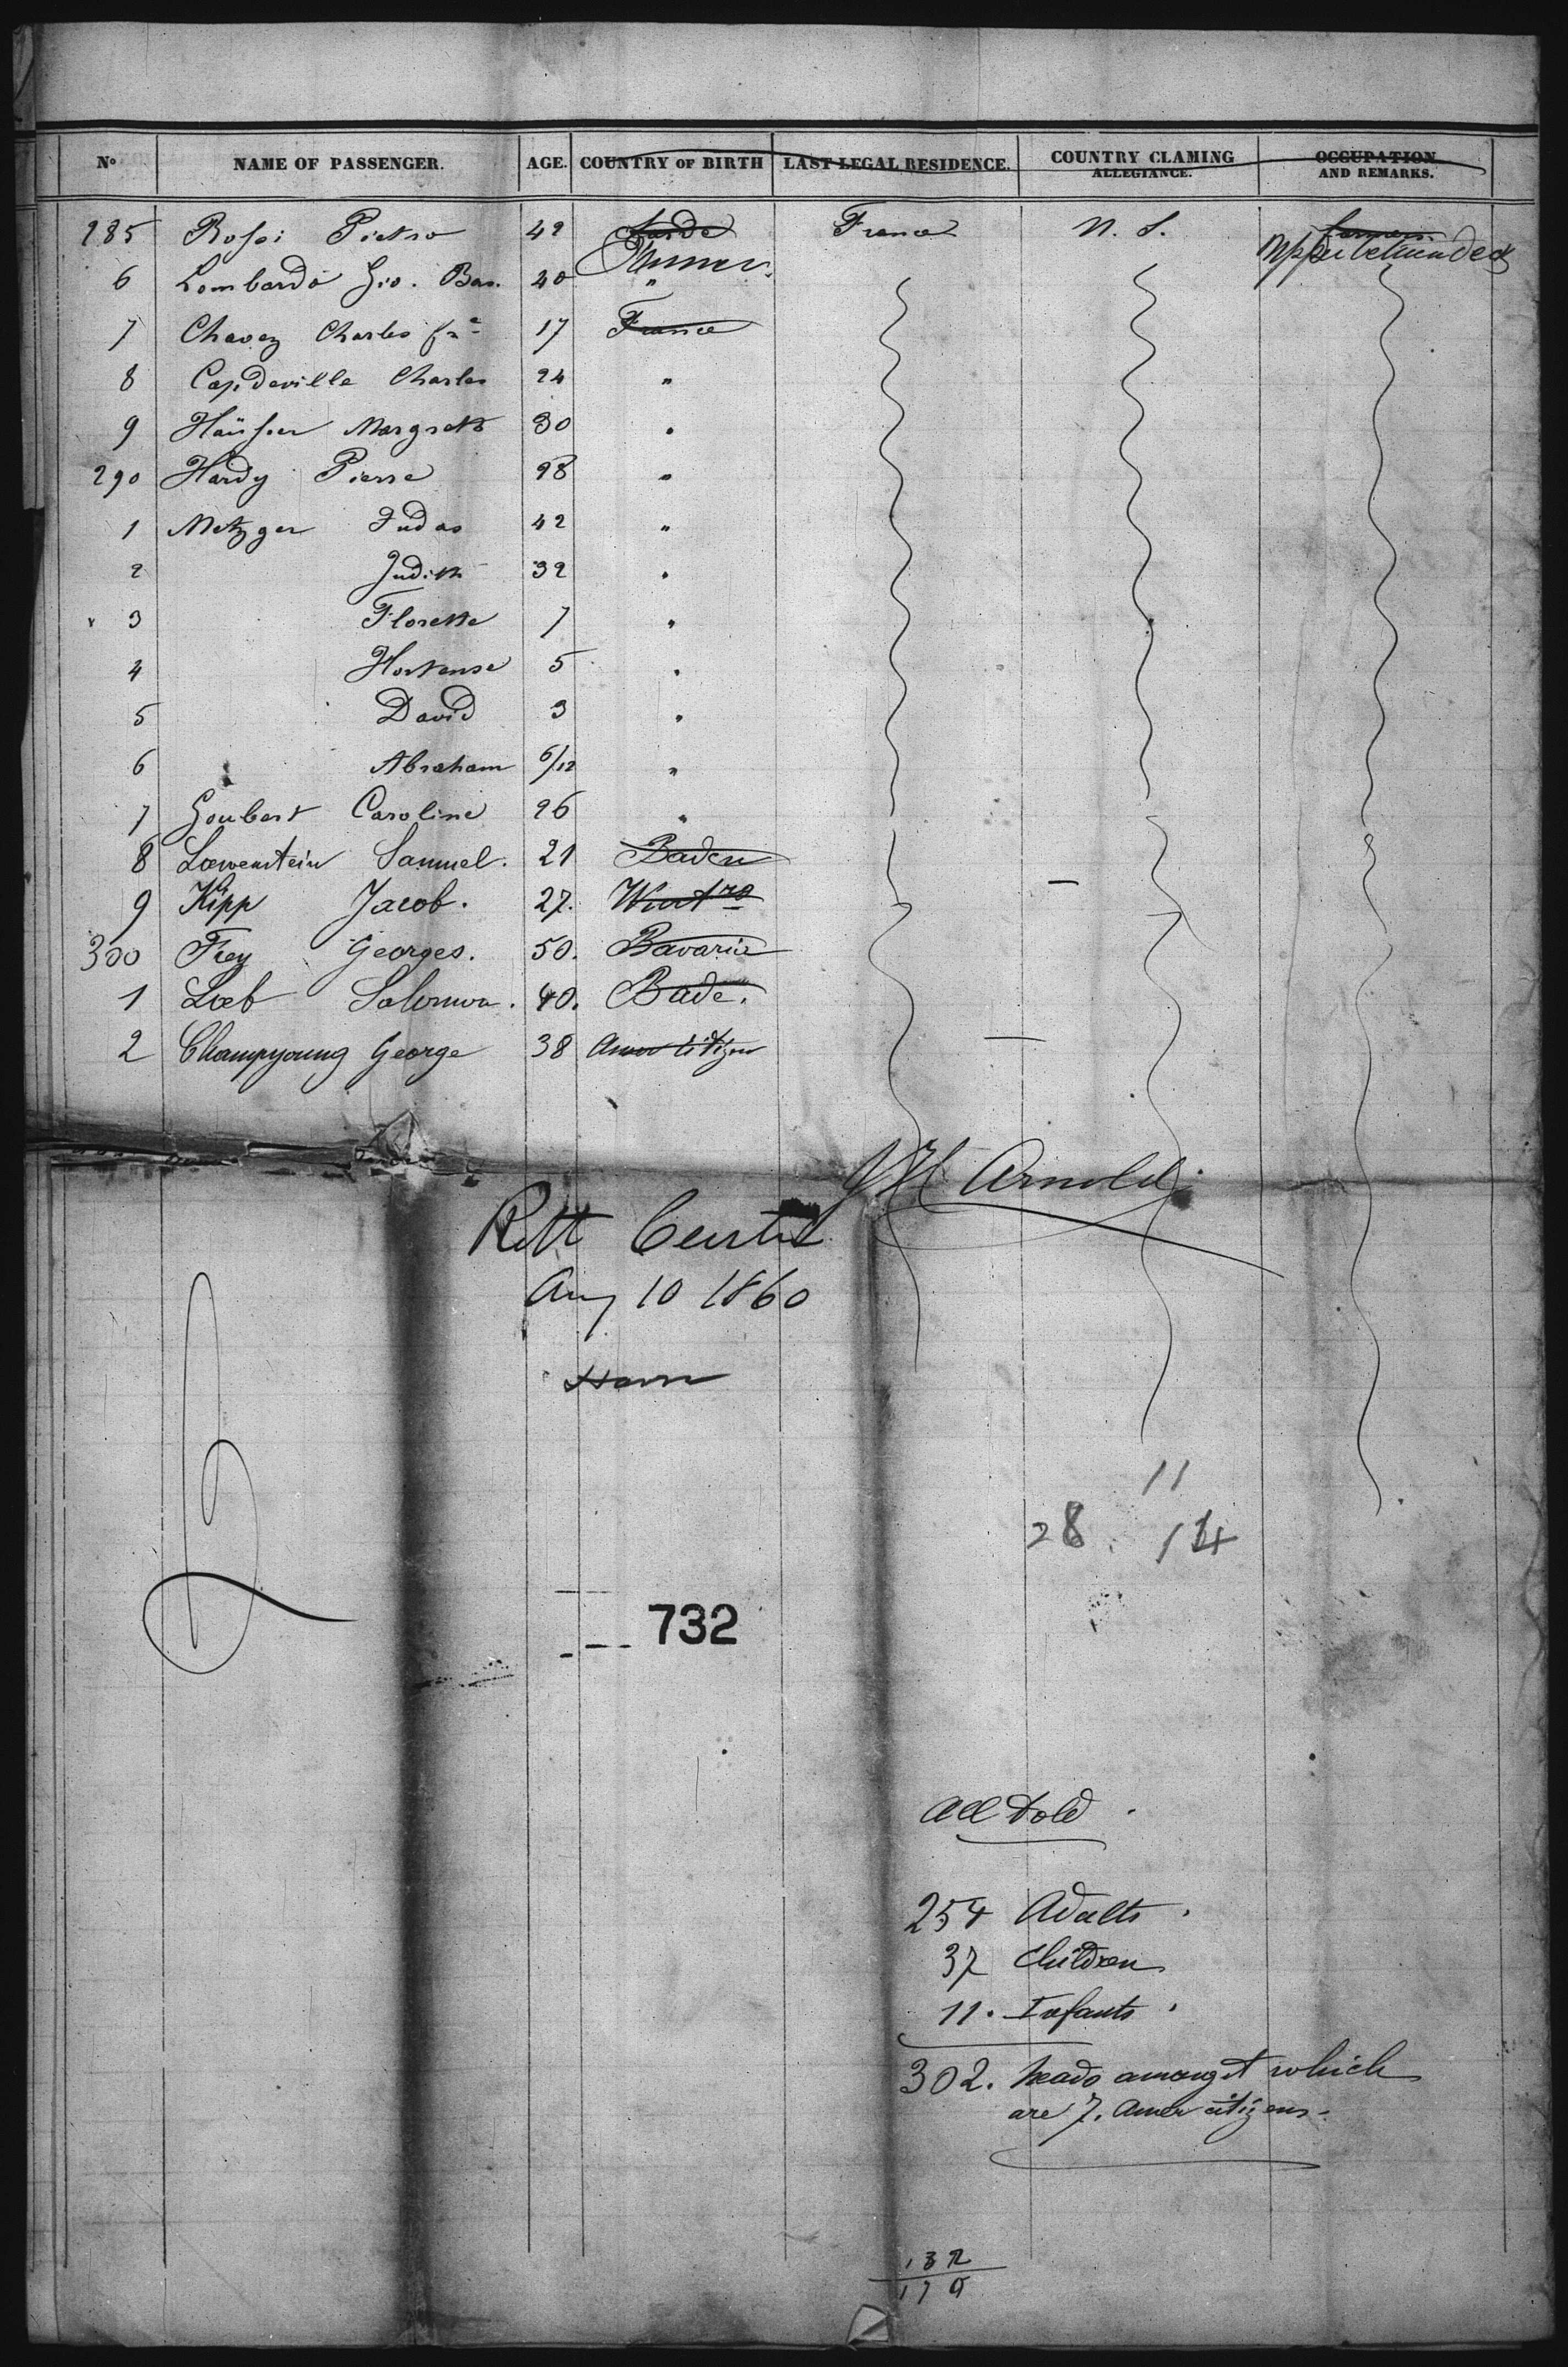 No NAME OF PASSENGER. AGE. COUNTRY OF BIRTH LAST LEGAL RESIDENCE. COUNTRY CLAMING ALLEGIANCE. OCCUPATION AND REMARKS.
285 Rossi Pietro 42 Sarde France N. S. farmers
Farmer
6 Lombardo Gio. Bas. 40 "
7 Chavez Charles 17 France
8 Capdeville Charles 24 "
9 Haüsser Margreth 30 "
290 Hardy Pierre 28 "
1 Metzger Judas 42 "
2 Judith 32 "
3 Florette 7 "
4 Hortense 5 "
5 David 3 "
6 Abraham 6/12 "
7 Goubert Caroline 26 "
8 Lœwenstein Samuel. 21 Baden
9 Kipp Jacob. 27. Wurtrg
300 Frey Georges. 50. Bavaria
1 Lœb Salomon. 40. Bade.
2 Champyoung George 38 Amer Citizen
Arnold
Rllt Curtis
Aug 10 1860
Havre
11
28. 14
732
All told
254 Adults
37 Children
11. Infants
302. heads amongst which
are 7. Amer citizens.
132
170